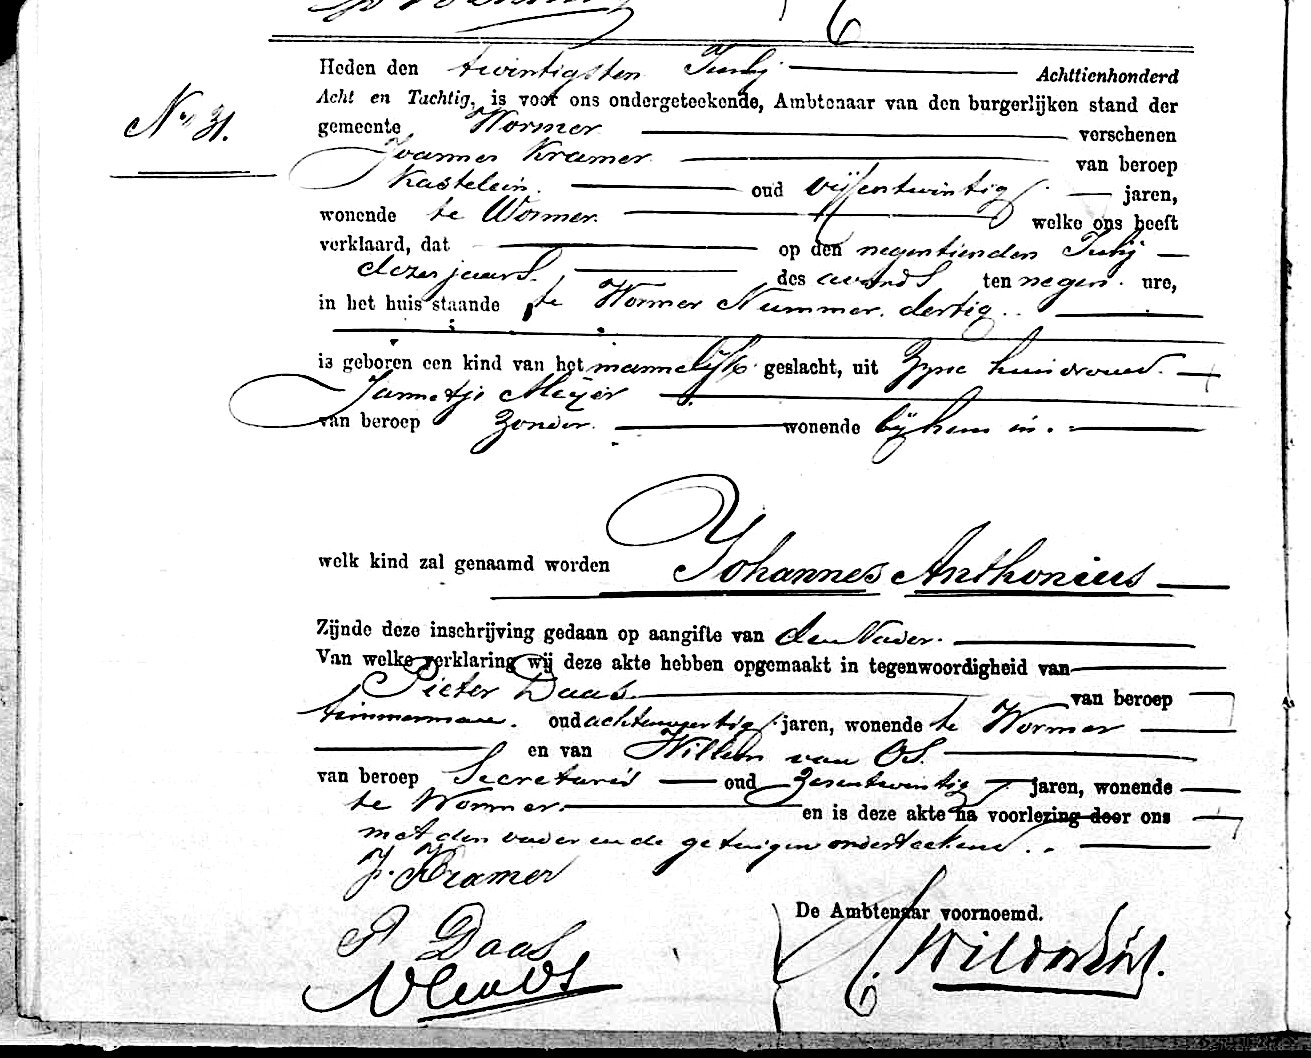 No 31.
Heden den twintigsten Julij Achttienhonderd
Acht en Tachtig, is voor ons ondergeteekende, Ambtenaar van den burgerlijken stand der
gemeente Wormer verschenen
Joannes Kramer van beroep
Kastelein. oud vijfentwintig jaren,
wonende te Wormer. welke ons heeft
verklaard, dat op den negentienden Julij
dezes jaars des avonds ten negen ure,
in het huis staande te Wormer Nummer dertig..
is geboren een kind van het mannelijk geslacht, uit zijne huisvrouw.
Jannetje Meijer
van beroep zonder. wonende bij hem in.
welk kind zal genaamd worden Johannes Anthonius
Zijnde deze inschrijving gedaan op aangifte van den Vader.
Van welke verklaring wij deze akte hebben opgemaakt in tegenwoordigheid van
Pieter Daas van beroep
timmerman. oud achtenveertig jaren, wonende te Wormer
en van Willem van Os.
van beroep Secretaris oud zesentwintig jaren, wonende
te Wormer. en is deze akte na voorlezing door ons
met den vader en de getuigen onderteekend..
J. Kramer
De Ambtenaar voornoemd.
P Daas
WvanOs